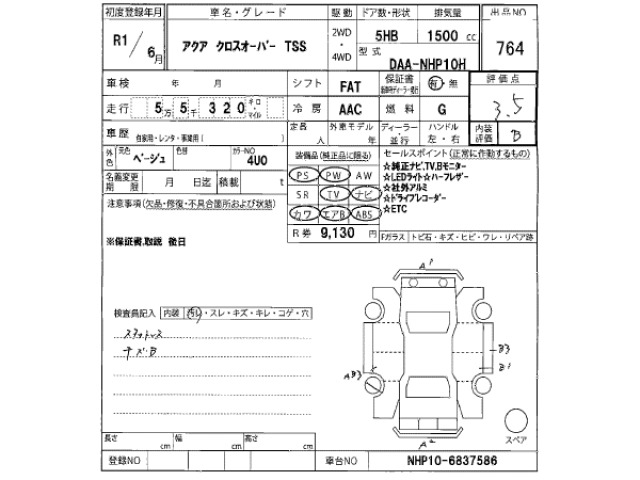 初度登録年月 車名・グレード 駆動 ドア数・形状 排気量 出品NO
R1/6月 アクア クロスオーバー TSS 2WD・4WD 5HB 1500 cc 764
型式 DAA-NHP10H
車検 年 月 シフト FAT 保証書 有・無 評価点
走行 5万5千320 キロ・マイル 冷房 AAC 燃料 G 3.5
車歴 自家用・レンタ・事業用( ) 定員 人 外車モデル 年 ディーラー・並行 ハンドル 左・右 内装評価 B
外色 元色 ベージュ 色替 カラーNO 4U0
装備品(純正品に限る) セールスポイント(正常に作動するもの)
名義変更期限 月 日迄 積載 t
PS PW AW
SR TV ナビ
カワ エアB ABS
☆純正ナビ,TV,Bモニター
☆LEDライト☆ハーフレザー
☆社外アルミ
☆ドライブレコーダー
☆ETC
注意事項(欠品・修復・不具合箇所および状態)
R券 9,130 円
Fガラス トビ石・キズ・ヒビ・ワレ・リペア跡
※保証書,取説 後日
A1
検査員記入 内装 汚れ・スレ・キズ・キレ・コゲ・穴
スタットレス
キズB
B3
B1
AB3
A2
スペア
長さ cm 幅 cm 高さ cm
登録NO 車台NO NHP10-6837586